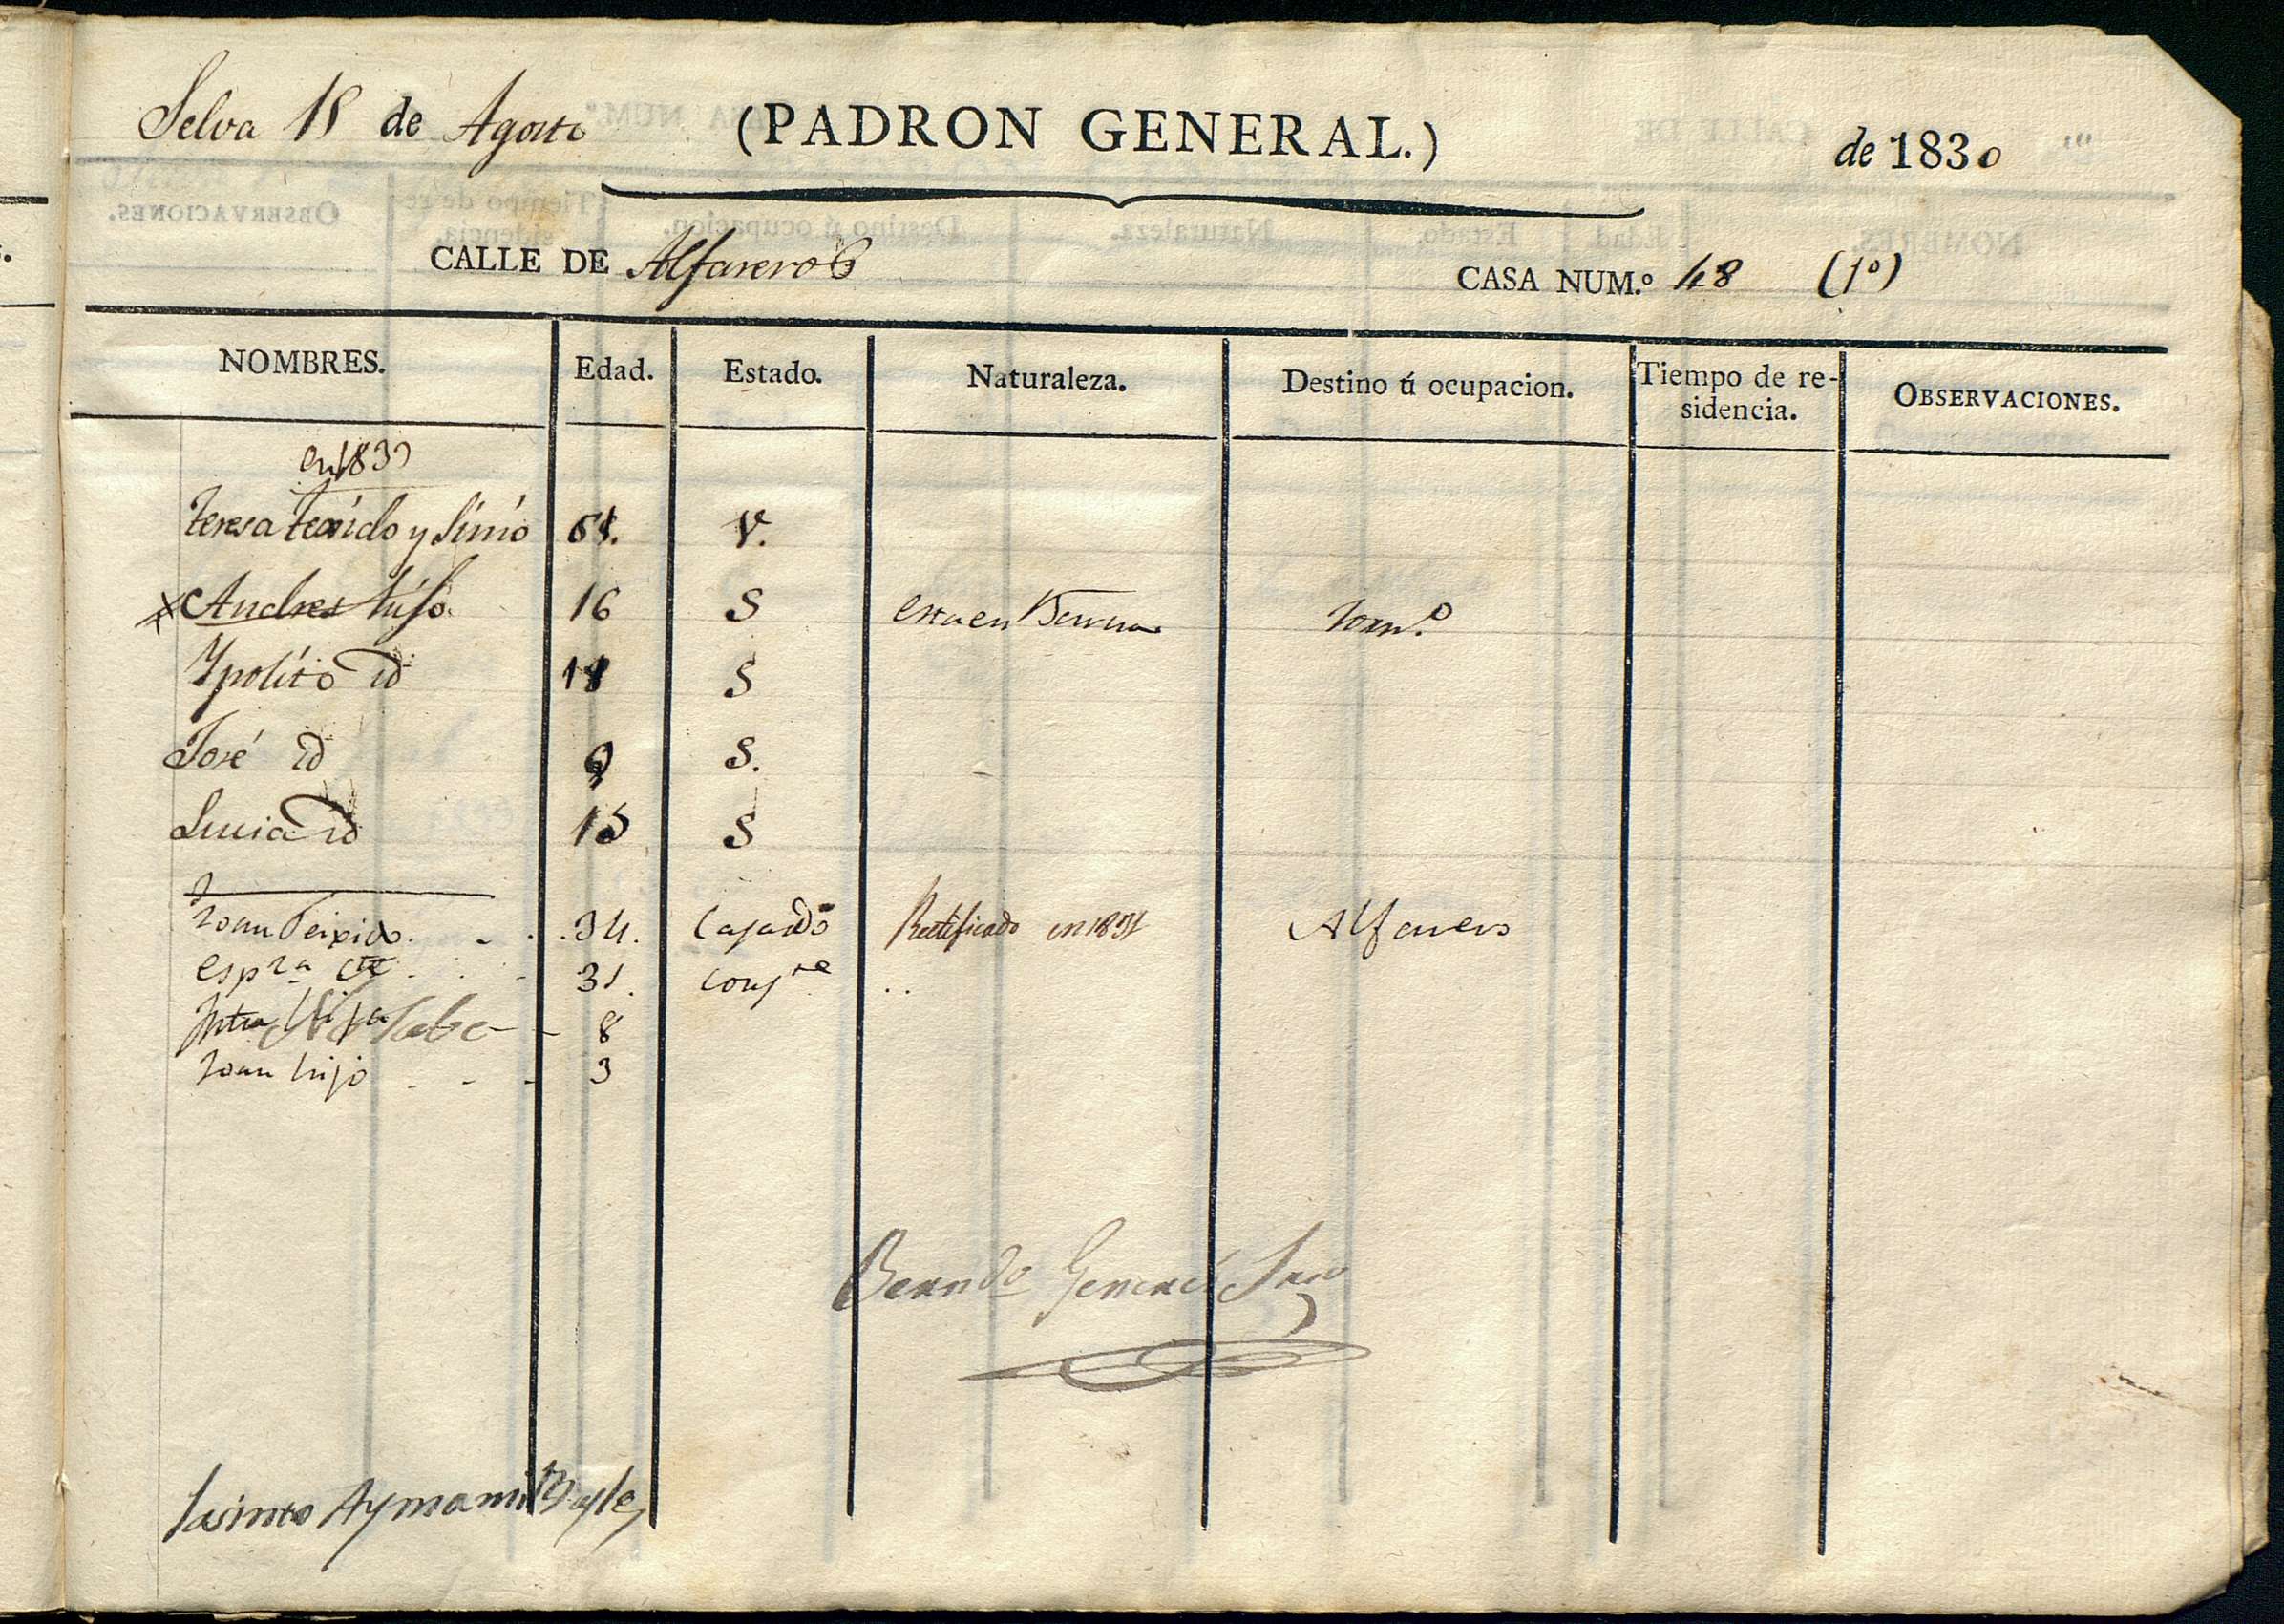 Selva 18 de Agosto (PADRON GENERAL.) de 1830
CALLE DE Alfareros CASA NUM.º 48 (1º)
NOMBRES. Edad. Estado. Naturaleza. Destino ú ocupacion. Tiempo de re-sidencia. OBSERVACIONES.
en 183
Teresa y Simó 61. V.
Andres hijo 16 S esta en
Ypolito id 18 S
José id 9 S.
Lucia id 15 S
Joan Teixido. 34. Casado Rectificado en 1831 Alfarero
Espza. cte 31. Conjte
hija 8
Joan hijo 3
Berndo
Jacinto Aymami Bayle